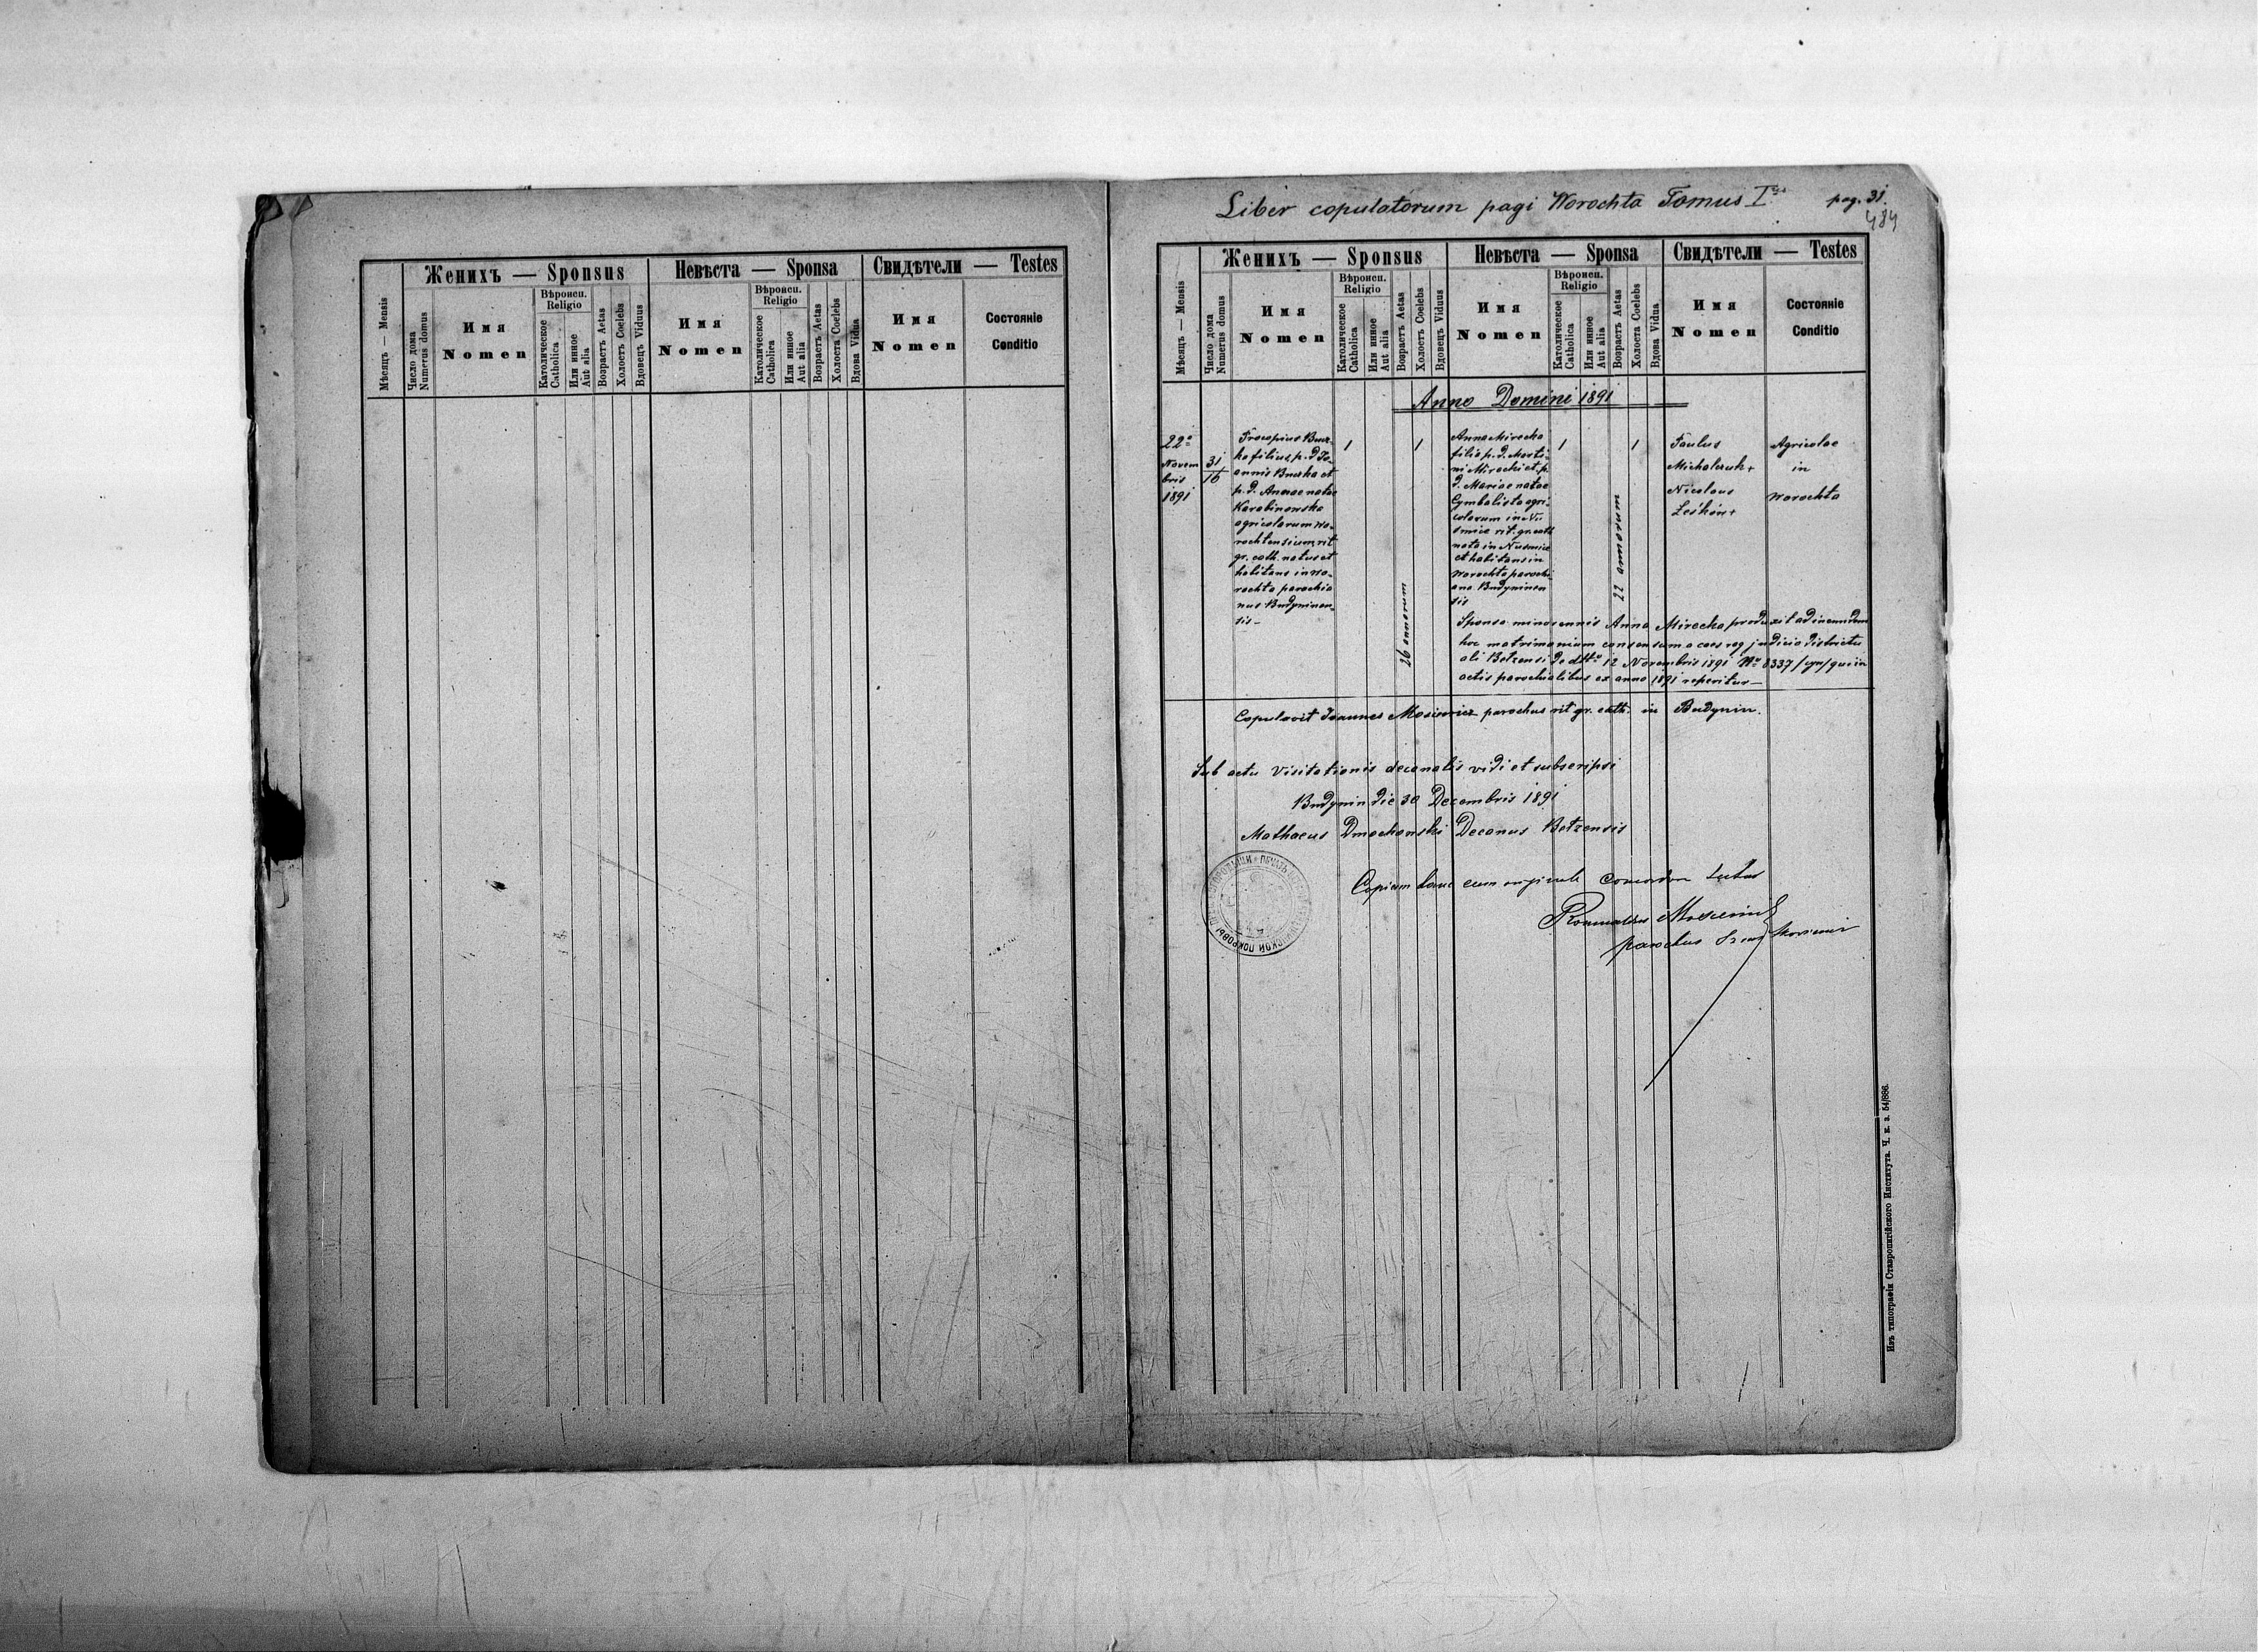 Женихъ — Sponsus
Невѣста — Sponsa
Свидѣтели — Testes
Мѣсяцъ — Mensis
Число дома
Numerus domus
Имя
Nomen
Вѣроисп.
Religio
Католическое
Catholica
Или инное
Aut alia
Возрастъ Aetas
Холостъ Coelebs
Вдовецъ Viduus
Имя
Nomen
Вѣроисп.
Religio
Католическое
Catholica
Или инное
Aut alia
Возрастъ Aetas
Холоста Coelebs
Вдова Vidua
Имя
Nomen
Состояніе
Conditio
Liber copulatorum pagi Worochta Tomus I
pag. 31.
484
Женихъ — Sponsus
Невѣста — Sponsa
Свидѣтели — Testes
Мѣсяцъ — Mensis
Число дома
Numerus domus
Имя
Nomen
Вѣроисп.
Religio
Католическое
Catholica
Или инное
Aut alia
Возрастъ Aetas
Холостъ Coelebs
Вдовецъ Viduus
Имя
Nomen
Вѣроисп.
Religio
Католическое
Catholica
Или инное
Aut alia
Возрастъ Aetas
Холоста Coelebs
Вдова Vidua
Имя
Nomen
Состояніе
Conditio
Anno Domini 1891
22
Novem
bris
1891
31
16
Procopius
filius p. d. Jo-
annis et
p. d. Annae natae
Karabinowska
agricolarum Wo-
rochtensium rit
gr. cath. natus et
habitans in Wo-
rochta parochia
nus Budyninen-
sis –
1
26 annorum
1
Anna Mirecka
filia p. d. Marti-
ni Mirecki et p.
d. Mariae natae
Cymbalista agri-
colarum in Nu
smice rit. gr. cath
nata in Nusmice
et habitans in
Worochta parochi
ana Budyninen
sis
1
22 annorum
1
Paulus
Michalczuk +
Nicolaus
Leśków +
Agricolae
in
Worochta
Sponsa minorennis Anna Mirecka produxit ad ineundum
hoc matrimonium consensum a caes reg judicio districtu
ali Betzensi de dtto 12 Novembris 1891 No 8337 qui in
actis parochialibus ex anno 1891 reperitur –
Copulavit Joannes Mosiewicz parochus rit gr. cath. in Budynin.
Sub actu visitationis decanalis vidi et subscripsi
Budynin die 30 Decembris 1891
Mathaeus Dmochowski Decanus Betzensis
Copiam hanc cum originali
Romualdus
parochus
Изъ типографіи Ставропигійского Института. Ч. к. з. 54/886.